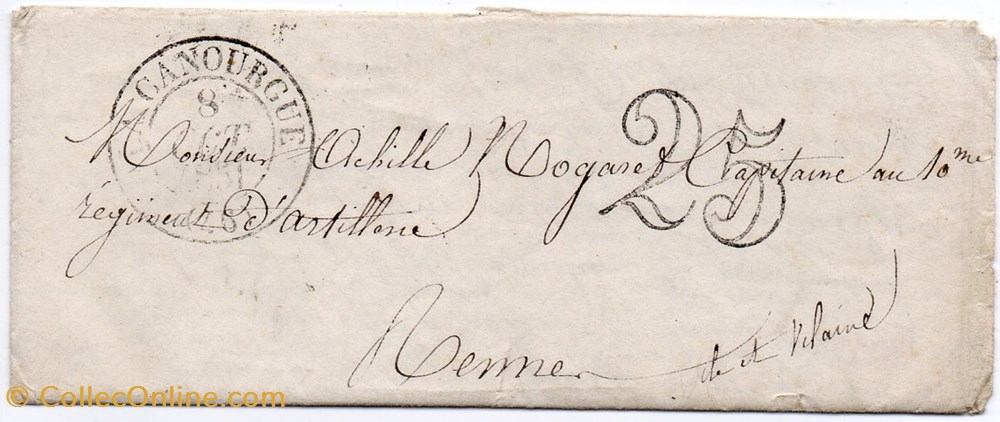 LA CANOURGUE
8
OCT
1851
(46)
25
Monsieur Achille Nogaret Capitaine au 10me
régiment d'artillerie
Rennes
ile et Vilaine
© CollecOnline.com